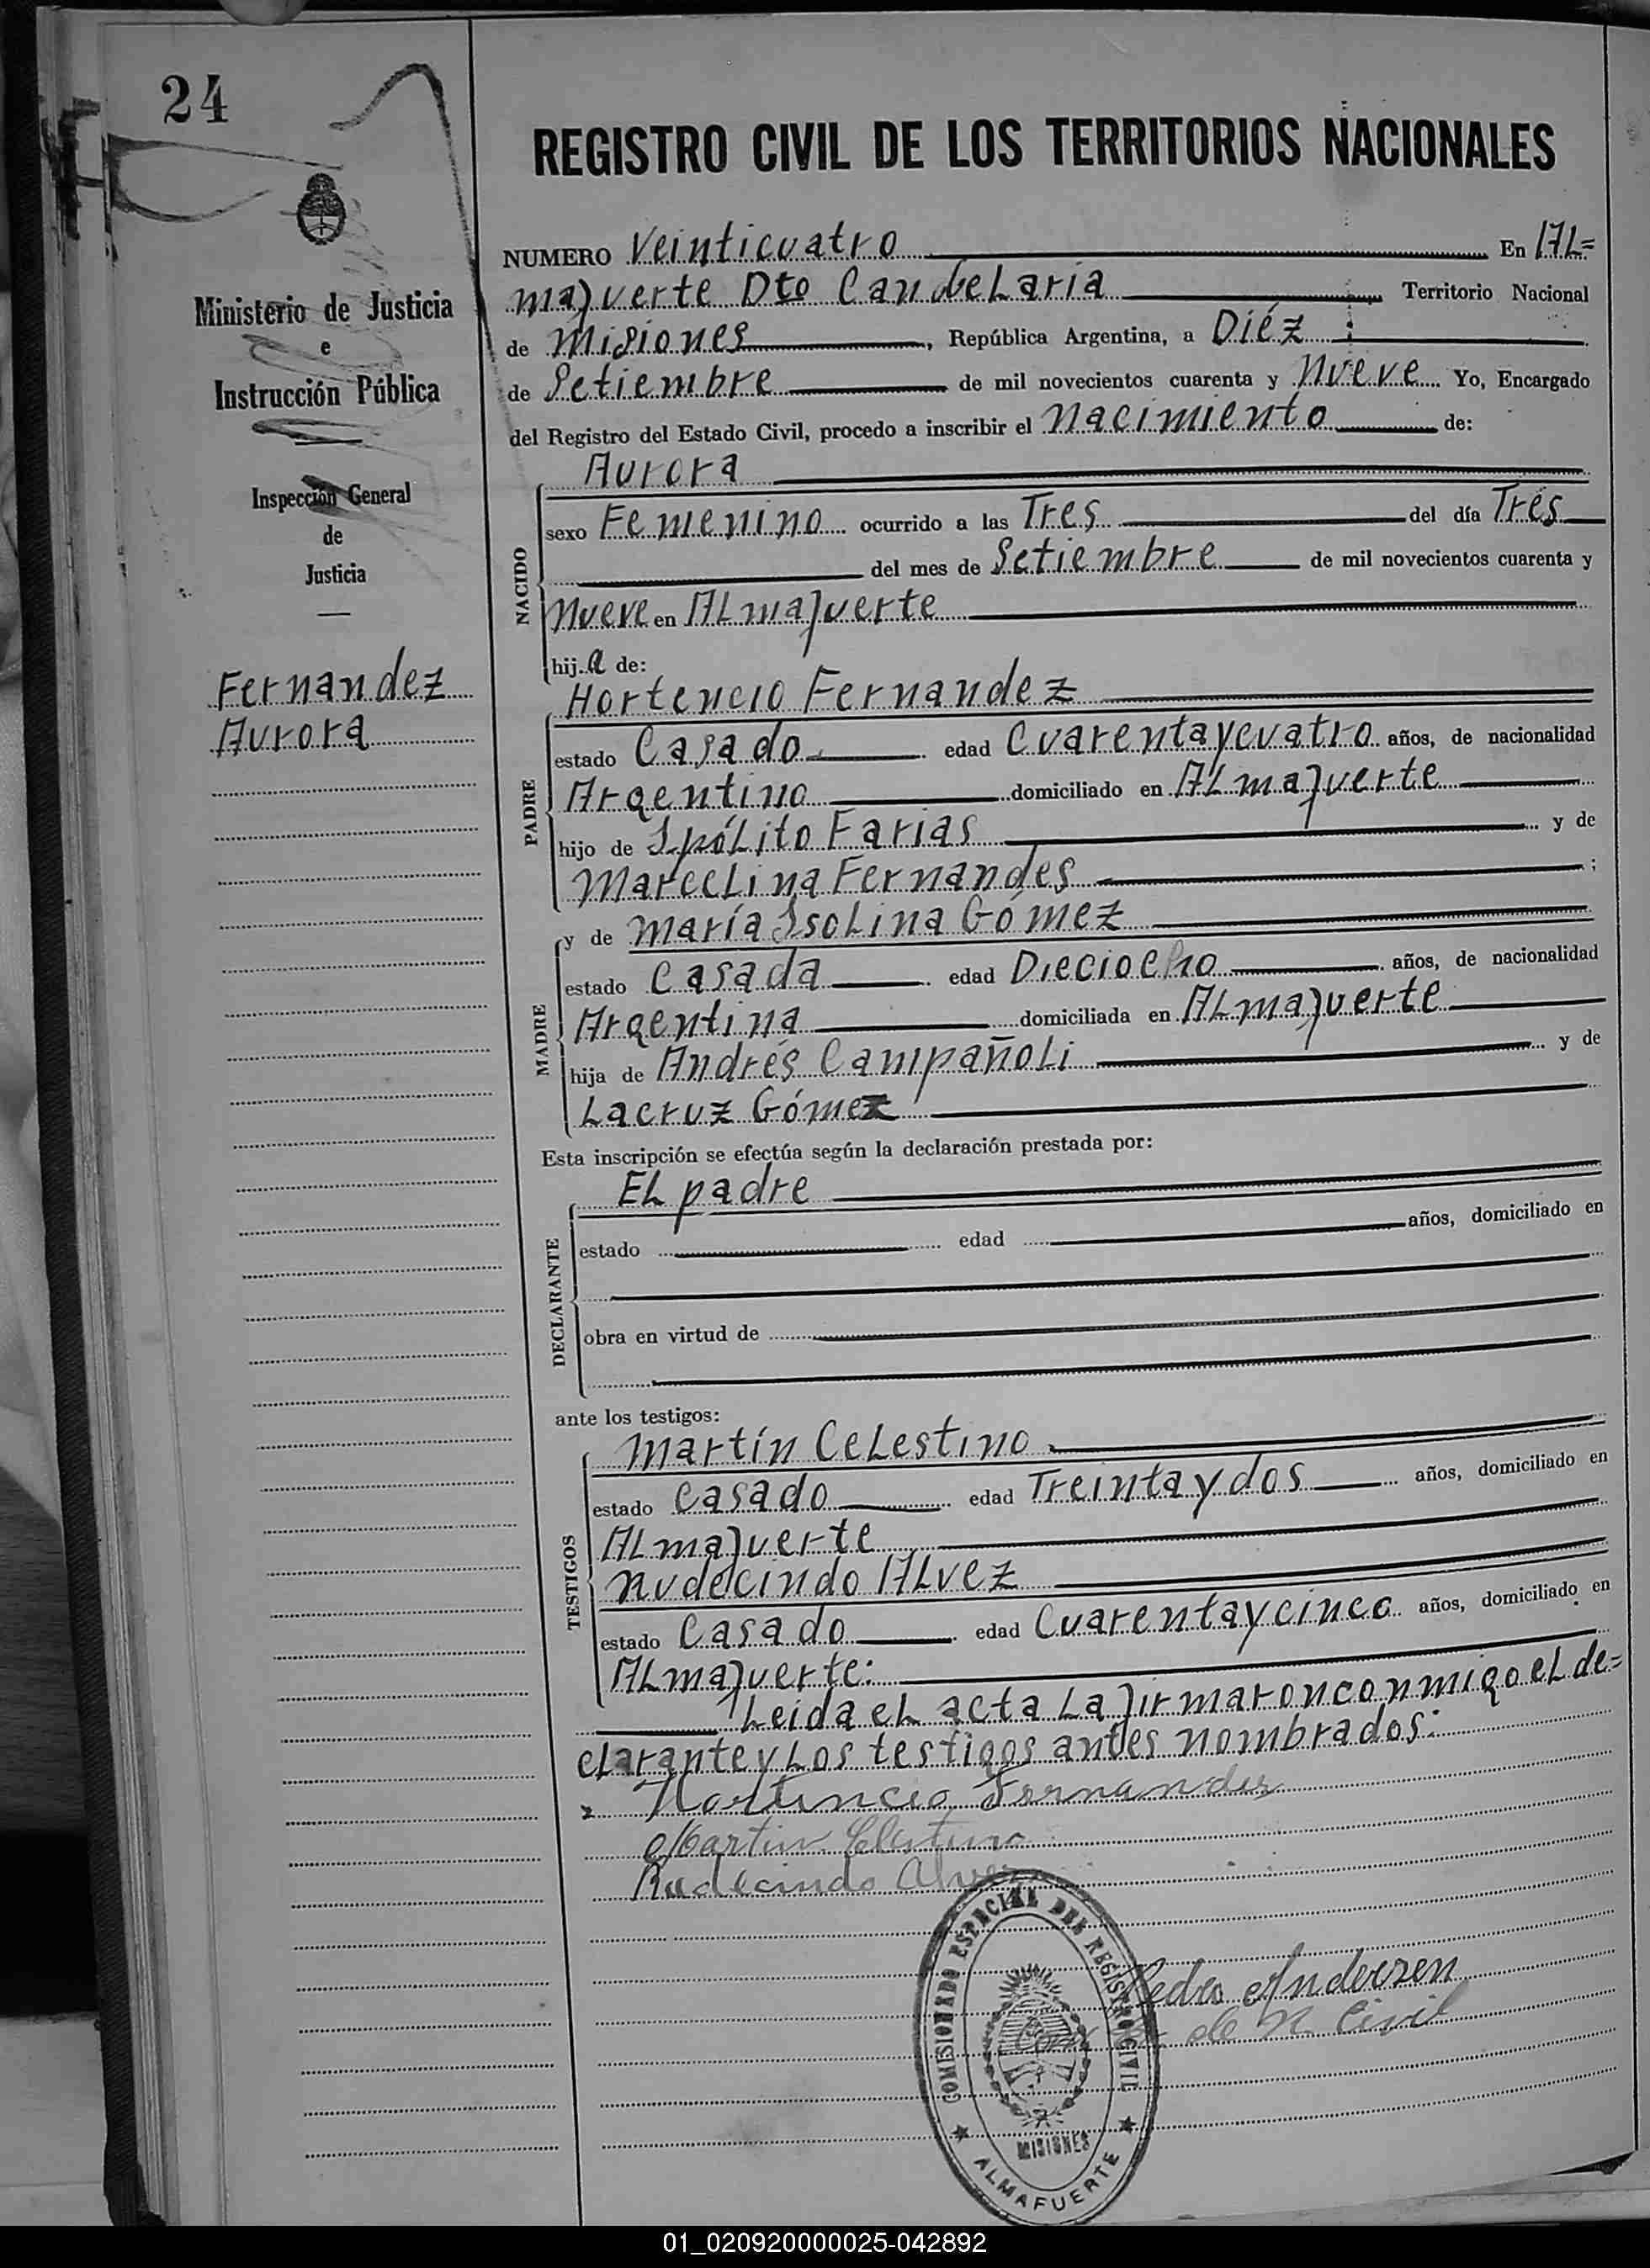 24
REGISTRO CIVIL DE LOS TERRITORIOS NACIONALES
Ministerio de Justicia
e
Instrucción Pública
Inspección General
de
Justicia
Fernandez
Aurora
NUMERO Veinticuatro En AL=
mafuerte Dto Candelaria Territorio Nacional
de Misiones, República Argentina, a Diéz
de Setiembre de mil novecientos cuarenta y Nueve Yo, Encargado
del Registro del Estado Civil, procedo a inscribir el Nacimiento de:
Aurora
NACIDO
sexo Femenino ocurrido a las Tres del día Tres
del mes de Setiembre de mil novecientos cuarenta y
Nueve en ALmafuerte
hij.a de:
Hortencio Fernandez
PADRE
estado Casado edad Cuarentaycuatro años, de nacionalidad
Argentino domiciliado en ALmafuerte
hijo de IpóLito Farias y de
MarceLina Fernandes ;
y de María IsoLina Gómez
MADRE
estado Casada edad Dieciocho años, de nacionalidad
Argentina domiciliada en ALmafuerte
hija de Andrés CampañoLi y de
Lacruz Gómez
Esta inscripción se efectúa según la declaración prestada por:
EL padre
DECLARANTE
estado edad años, domiciliado en
obra en virtud de
ante los testigos:
Martín CeLestino
TESTIGOS
estado Casado edad Treintaydos años, domiciliado en
ALmafuerte
Rudecindo ALvez
estado Casado edad Cuarentaycinco años, domiciliado en
ALmafuerte:
Leida eL acta La firmaron conmigo eL de=
cLarante y Los testigos antes nombrados:
Hortencio Fernandez
Martin Celestino
Rudecindo Alvez
Pedro Andersen
de R. Civil
COMISIONADO ESPECIAL DEL REGISTRO CIVIL
MISIONES
ALMAFUERTE
01_020920000025-042892